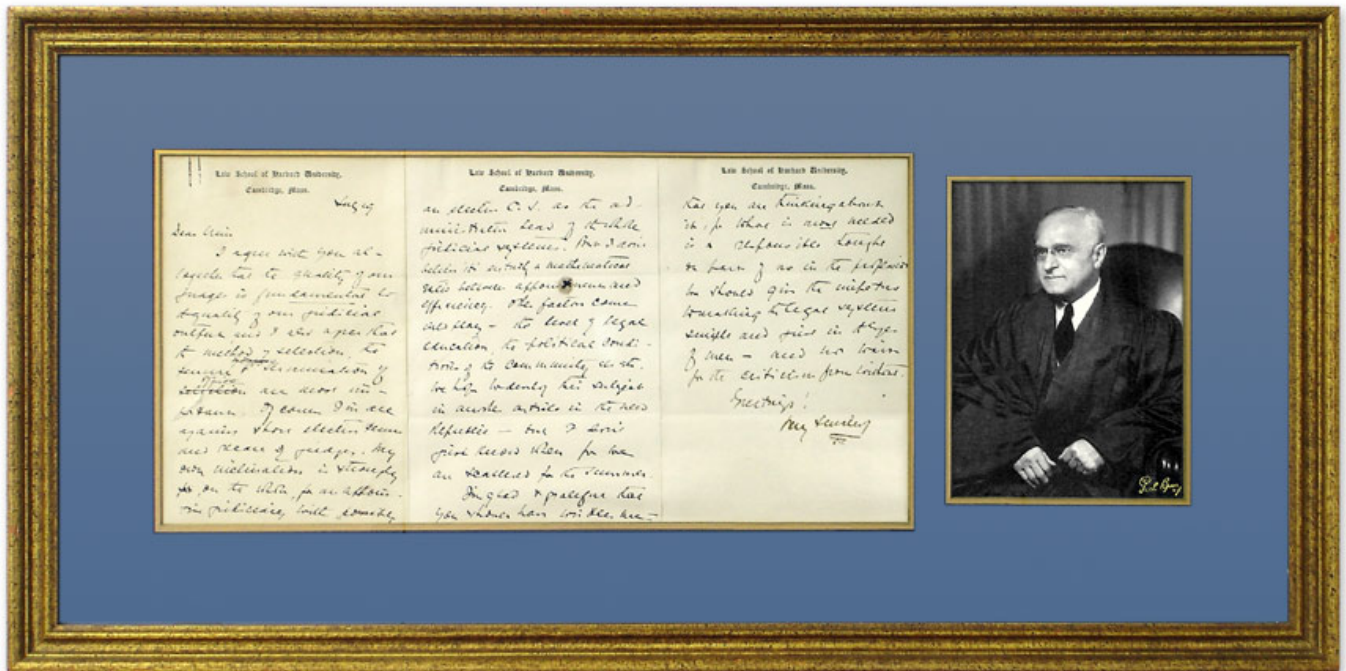 Law School of Harvard University,
Cambridge, Mass.
Dear
I agree with you al-
together that the quality of our
judges is fundamental to
quality of our judicial
output and I also agree that
the method of selection, the
tenure & termination of
office are most im-
portant. Of course I'm
against short elective tenure
and recall of judges. My
own inclination is strongly
on the whole, for an appoin-
tive judiciary with possibly
Law School of Harvard University,
Cambridge, Mass.
an elective C. J. as the ad-
ministrative head of the whole
judicial systems. But I don't
believe it's entirely a mathematical
ratio between appointment and
efficiency. Other factors come
into play – the level of legal
education, the political condi-
tions of the community etc. etc.
We hope to develop this subject
in another article in the New
Republic – but I don't
just know when for we
are scattered for the summer.
I'm glad & grateful that
you should have written me –
Law School of Harvard University,
Cambridge, Mass.
that you are thinking about
it, for what is most needed
is a responsible thought
on part of us in the profession
who should give the impetus
to making the legal systems
simple and just in the eyes
of men – and not wait
for the criticism from without.
Greetings!